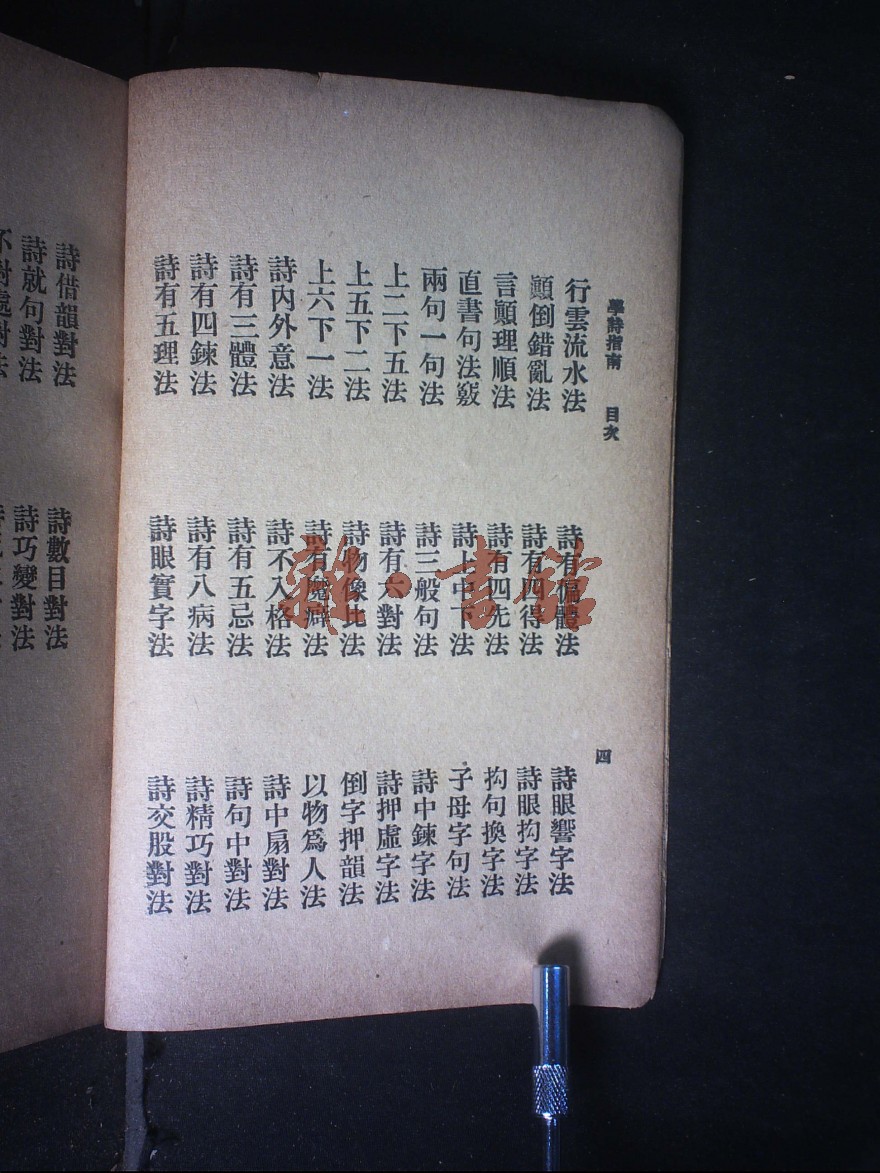 學詩指南 目次
四
行雲流水法
顛倒錯亂法
言顛理順法
直書句法竅
兩句一句法
上二下五法
上五下二法
上六下一法
詩內外意法
詩有三體法
詩有四鍊法
詩有五理法
詩有偏體法
詩有四得法
詩有四先法
詩上中下法
詩三般句法
詩有六對法
詩物像比法
詩有魔癖法
詩不入格法
詩有五忌法
詩有八病法
詩眼實字法
詩眼響字法
詩眼拘字法
拘句換字法
子母字句法
詩中鍊字法
詩押虛字法
倒字押韻法
以物爲人法
詩中扇對法
詩句中對法
詩精巧對法
詩交股對法
詩借韻對法
詩就句對法
不對處對法
詩數目對法
詩巧變對法
雜·書館